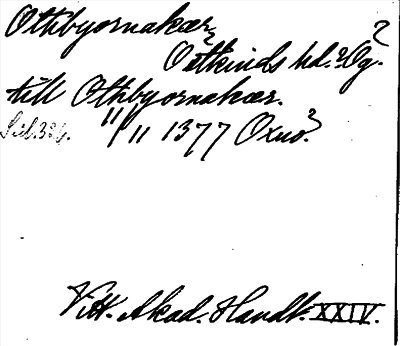 Othbyornakær,
Östkinds hd. Ög.?
till Othbyornakær.
Sid. 336. 11/11 1377 Oxnö?
Vitt. Akad. Handl. XXIV.